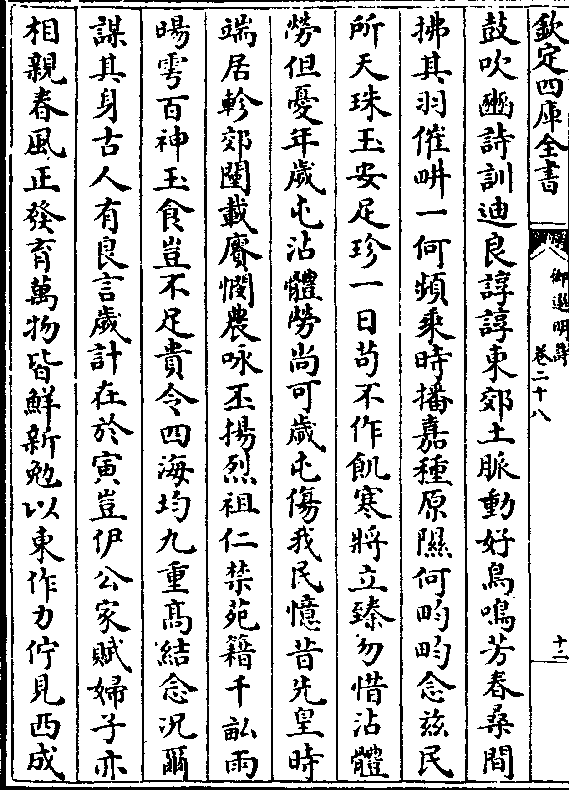 欽定四庫全書
御選明詩
卷二十八
十二
鼓吹豳詩訓迪良諄諄東郊土脈動好鳥鳴芳春桑間
拂其羽催耕一何頻乘時播嘉種原隰何畇畇念兹民
所天珠玉安足珍一日苟不作飢寒將立臻勿惜沾體
勞但憂年歲屯沾體勞尚可歲屯傷我民憶昔先皇時
端居軫郊闉載賡憫農咏丕揚烈祖仁禁苑籍千畝雨
暘雩百神玉食豈不足貴令四海均九重髙結念況爾
謀其身古人有良言歲計在於寅豈伊公家賦婦子亦
相親春風正發育萬物皆鮮新勉以東作力佇見西成